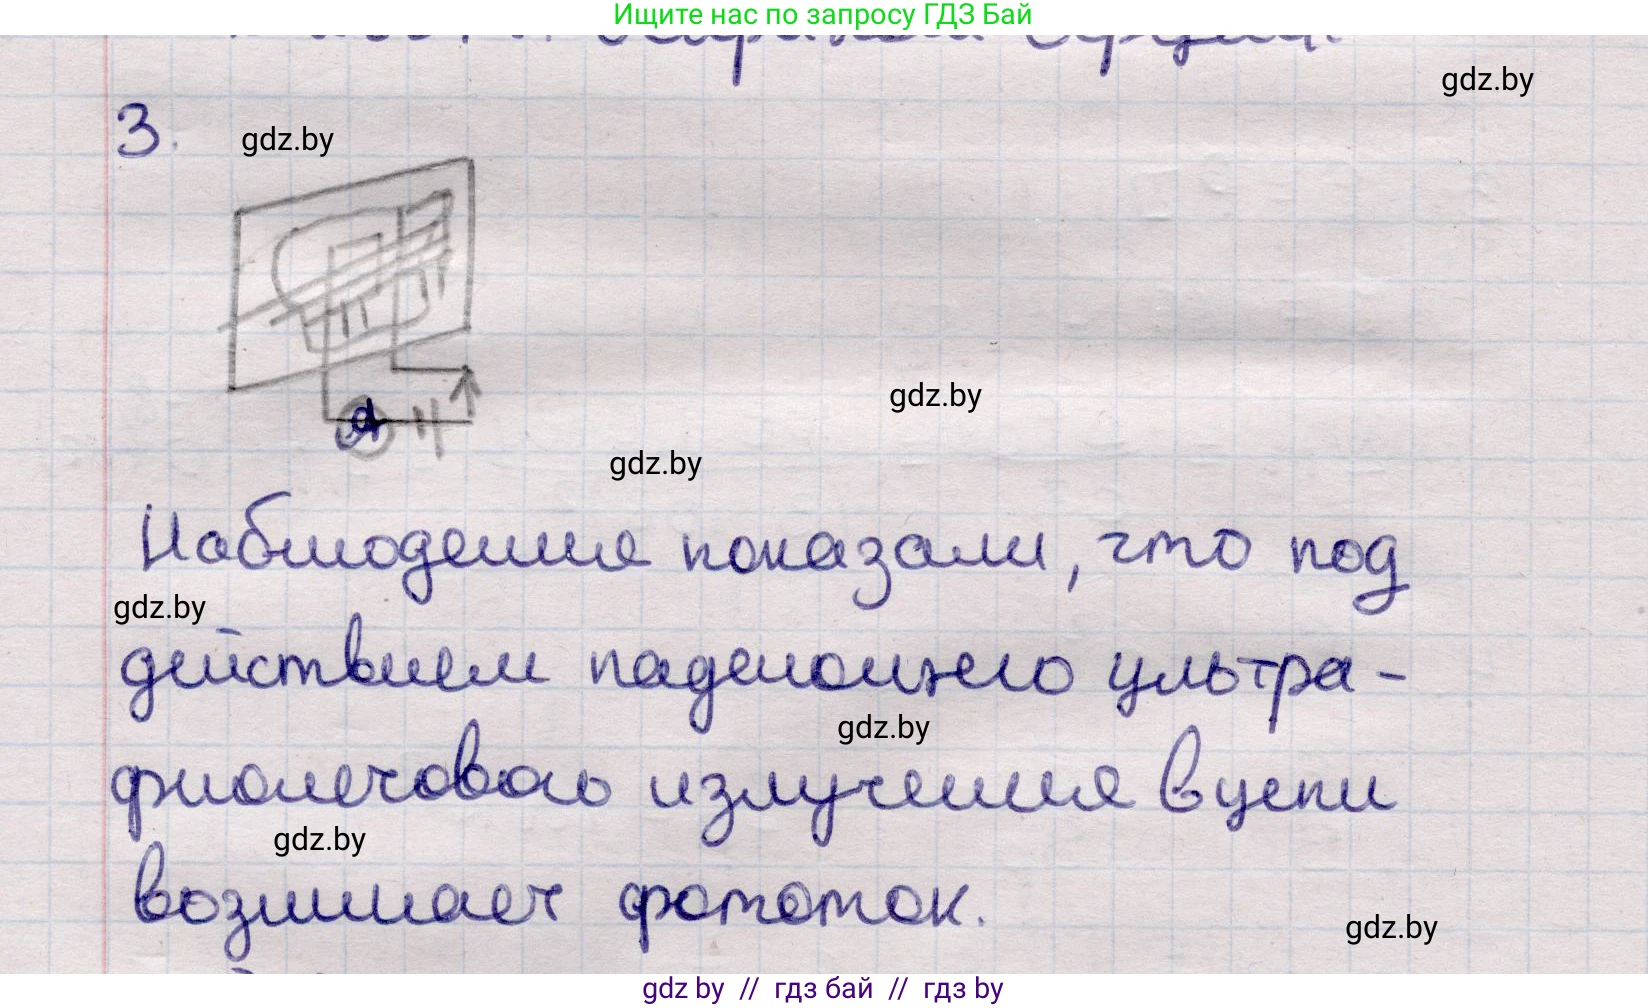 Ищите нас по запросу ГДЗ Бай
gdz.by
3.
gdz.by
A
gdz.by
gdz.by
Наблюдения показали, что под
gdz.by
действием падающего ультра-
gdz.by
фиолетового излучения в цепи
gdz.by
возникает фототок.
gdz.by
gdz by // гдз бай // гдз by